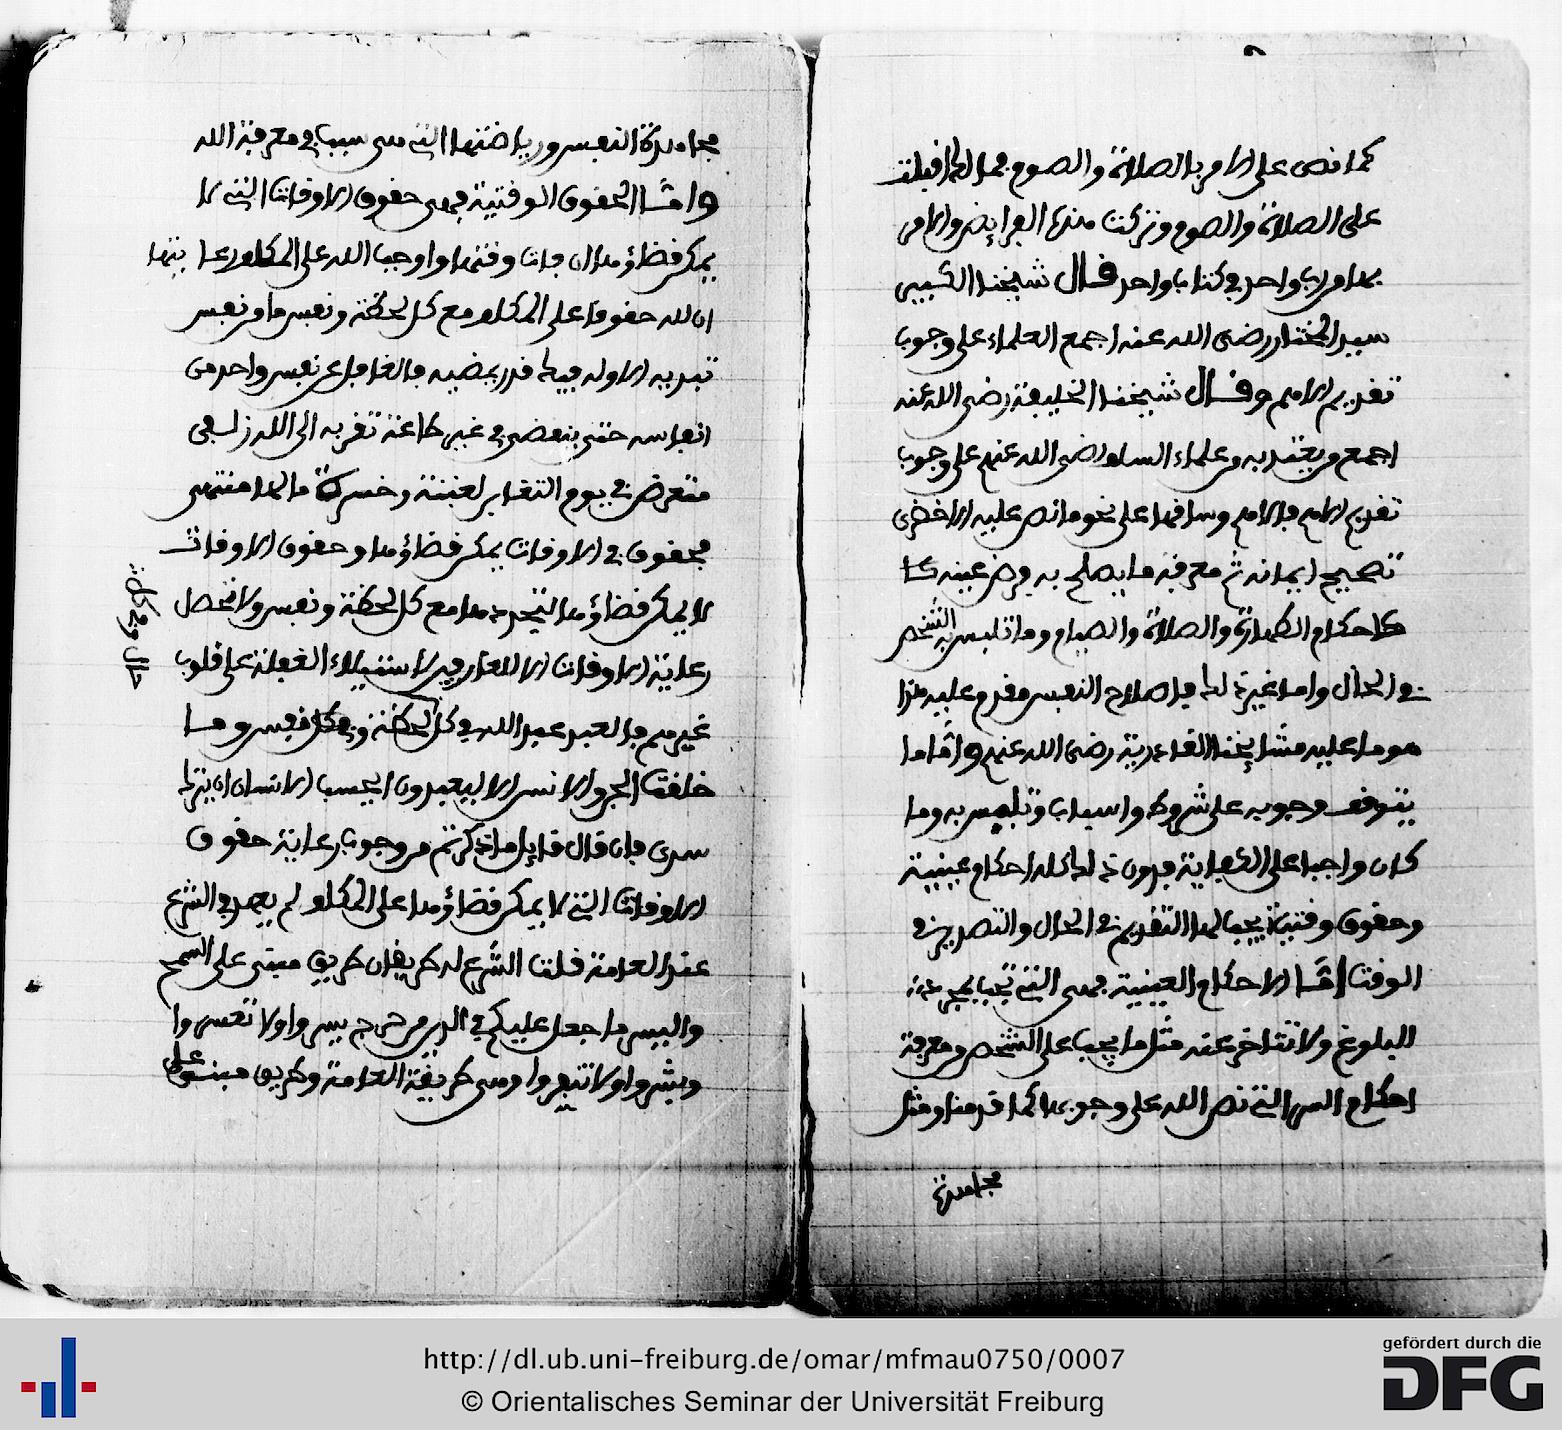 كما نص على الامر بالصلاة والصوم فما لها فبلت
على الصلاة والصوم وتركت منها الفرايض والامر
بها مرا واحد في كتاب واحد قال شيخنا الكبير
سيد المختار رضى الله عنه اجمع العلماء على وجوب
تقديم الاهم وقال شيخنا الخليفة رضى الله عنه
اجمع من يعتد به من علماء السلف رضى الله عنهم على وجوب
تقديم الاهم فالاهم وساقها على نحو ما نص عليه الاخضرى
تصحيح ايمانه ثم معرفة ما يصلح به فرض عينه
كاحكام الطهارة والصلاة والصيام وما تلبس به الشخص
في الحال واما غير ذلك فاصلاح النفس مقدم عليه هذا
هو ما عليه مشايخنا القادرية رضى الله عنهم واما ما
يتوقف وجوبه على شروط واسباب وتلبس به وما
كان واجبا على الكفاية فدون ذلك كله احكام عينية
وحقوق وقتية يجب لها التقديم في الحال والتصدير في
الوقت اما الاحكام العينية فهى التى تجب بمجرد
البلوغ ولا تتاخر عنه مثل ما يجب على الشخص من معرفة
احكام الدين التى نص الله على وجوبها كما قدمنا ومثل
مجاهدة
مجاهدة النفس ورياضتها التى هى سبب في معرفة الله
واما الحقوق الوقتية فهى حقوق الاوقات التى لا
يمكن قضاؤها ان فات وقتها واوجب الله على المكلف رعايتها
ان لله حقوقا على المكلف مع كل لحظة ونفس ما من نفس
تبديه الا وله فيك قدر يمضيه فالغافل عن نفس واحد من
انفاسه حتى ينقضى في غير طاعة تقربه الى الله زلفى
متعرض في يوم التغابن لغبينة وخسرة ما لها منتهى
فحقوق في الاوقات يمكن قضاؤها وحقوق الاوقات
لا يمكن قضاؤها لتجددها مع كل لحظة ونفس ولا تحصل
رعاية الاوقات الا للعارفين لاستيلاء الغفلة على قلوب
غيرهم فالعبد عبد الله في كل لحظة وفي كل نفس وما
خلقت الجن والانس الا ليعبدون ايحسب الانسان ان يترك
سدى فان قال قايل ما ذكرتم من وجوب رعاية حقوق
الاوقات التى لا يمكن قضاؤها على المكلف لم يعهد في الشرع
عند العامة قلت الشرع له طريقان طريق مبنى على السمح
واليسر ما جعل عليكم في الدين من حرج يسروا ولا تعسروا
وبشروا ولا تنفروا وهى طريقة العامة وطريق مبنى على
حال وفي كل
http://dl.ub.uni-freiburg.de/omar/mfmau0750/0007
© Orientalisches Seminar der Universität Freiburg
gefördert durch die
DFG